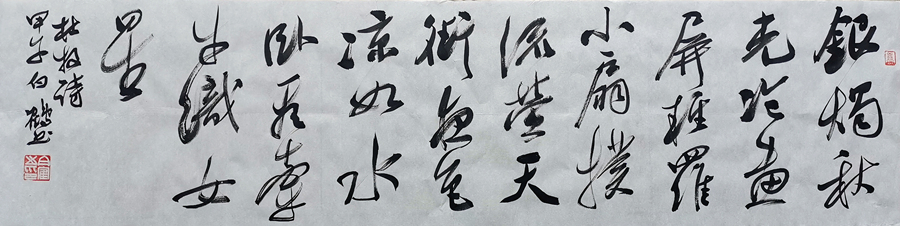 銀燭秋
光冷畫
屏輕羅
小扇撲
流螢天
街夜色
涼如水
臥看牽
牛織女
星
杜牧詩
甲午白鶴書